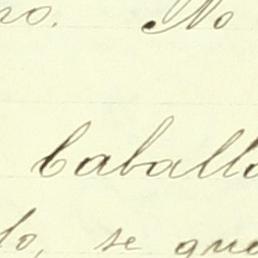 ro. No
Caballo
lo, se que